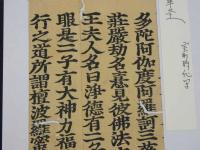 多陀阿伽度阿羅訶三
莊嚴劫名憙見彼佛法
王夫人名曰淨德有二
眼是二子有大神力福
行之道所謂檀波羅蜜